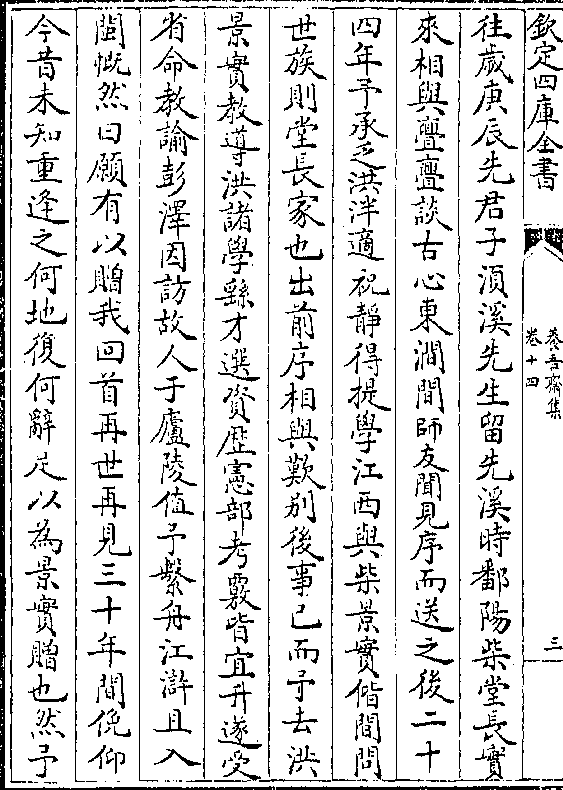 欽定四庫全書
養吾齋集
卷十四
三
往歲庚辰先君子湏溪先生留先溪時鄱陽柴堂長實
來相與亹亹談古心東澗間師友聞見序而送之後二十
四年予承乏洪泮適祝靜得提學江西與柴景實偕間問
世族則堂長家也出前序相與歎别後事已而予去洪
景實教導洪諸學繇才選資歴憲部考覈皆宜升遂受
省命教諭彭澤因訪故人于廬陵值予繫舟江滸且入
閩慨然曰願有以贈我回首再世再見三十年間俛仰
今昔未知重逢之何地復何辭足以為景實贈也然予